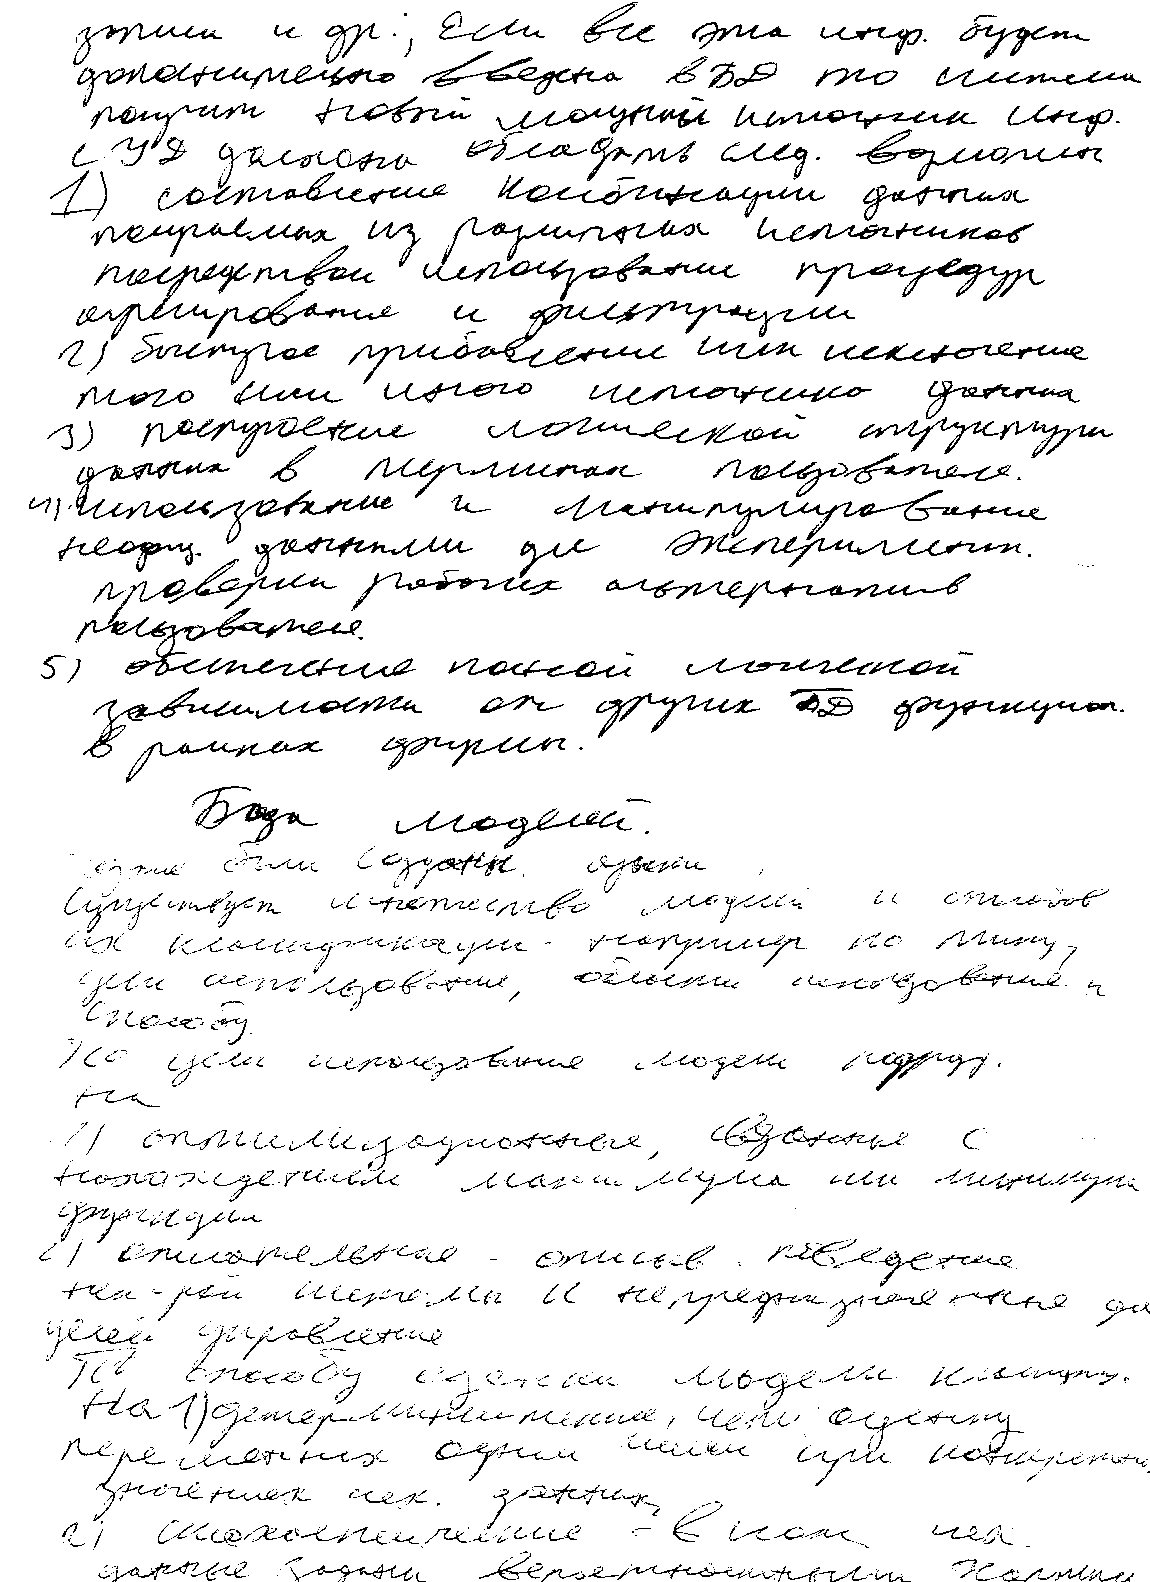 записи и др., Если вся эта инф. будет
дополнительно введена в БД то система
получит новый мощный источник инф.
СУД должна обладать след. возможн
1) составление комбинации данных
получаемых из различных источников
посредством использования процедур
агрегирования и фильтрации
2) быстрое прибавление или исключение
того или иного источника данных
3) построение логической структуры
данных в терминах пользователя.
4) использование и манипулирование
неофиц. данными для эксперимент.
проверки рабочих альтернатив
пользователя.
5) обеспечение полной логической
зависимости от других БД функцион.
в рамках фирмы.
База моделей.
были созданы
Существует множество моделей и способов
их классификации например по типу,
цели использования, области использования и
способу
По цели использования модели подразд.
на
1) оптимизационные, связанные с
нахождением максимума или минимума
функции
2) описательные - описыв. поведение
нек-рой системы и не предназначенные для
целей управления
По способу оценки модели классиф.
на 1) детерминистские, оценку
переменных одним числом при конкретных
значениях исх. данных
2) стохастические - в кот исх.
данные заданы вероятностными